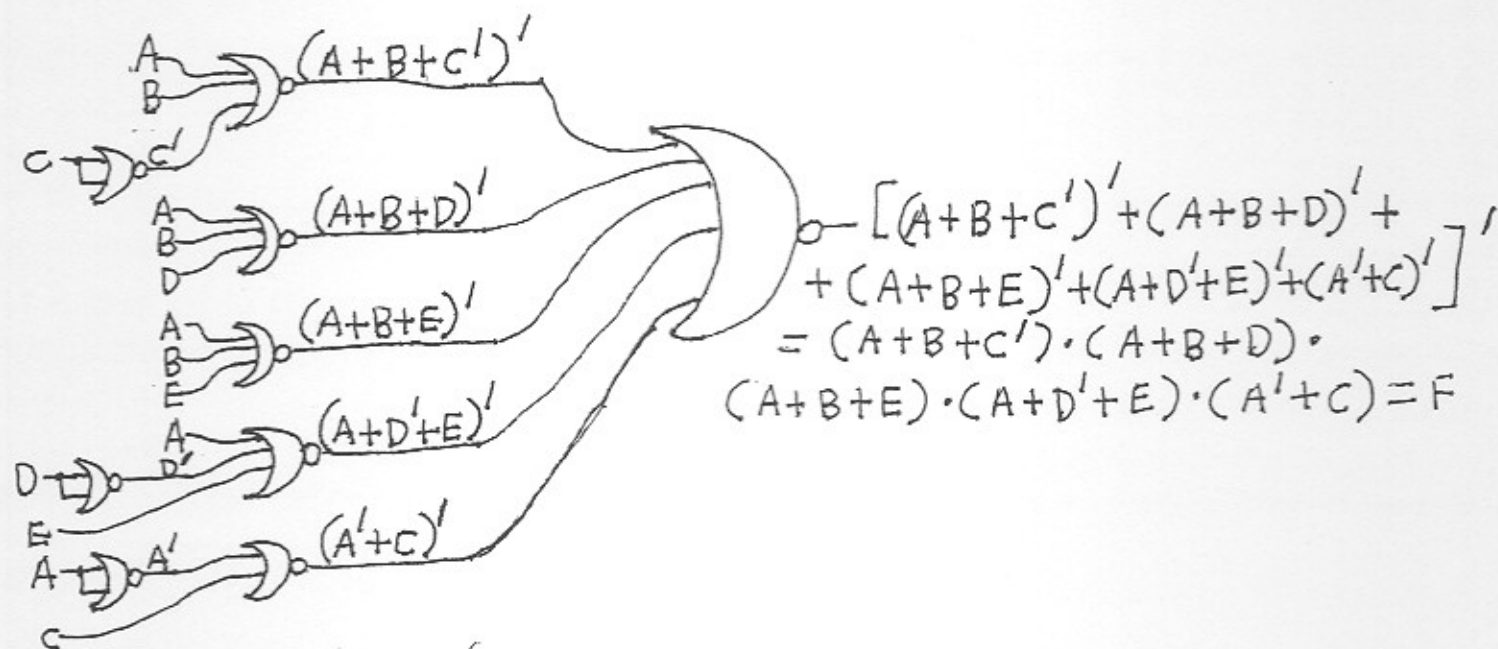 A
(A+B+C')'
B
C
C'
A
(A+B+D)'
B
D
A
(A+B+E)'
B
E
A
(A+D'+E)'
D
D'
E
A
A'
(A'+C)'
C
[(A+B+C')'+(A+B+D)'+
+(A+B+E)'+(A+D'+E)'+(A'+C)']'
=(A+B+C')·(A+B+D)·
(A+B+E)·(A+D'+E)·(A'+C)=F